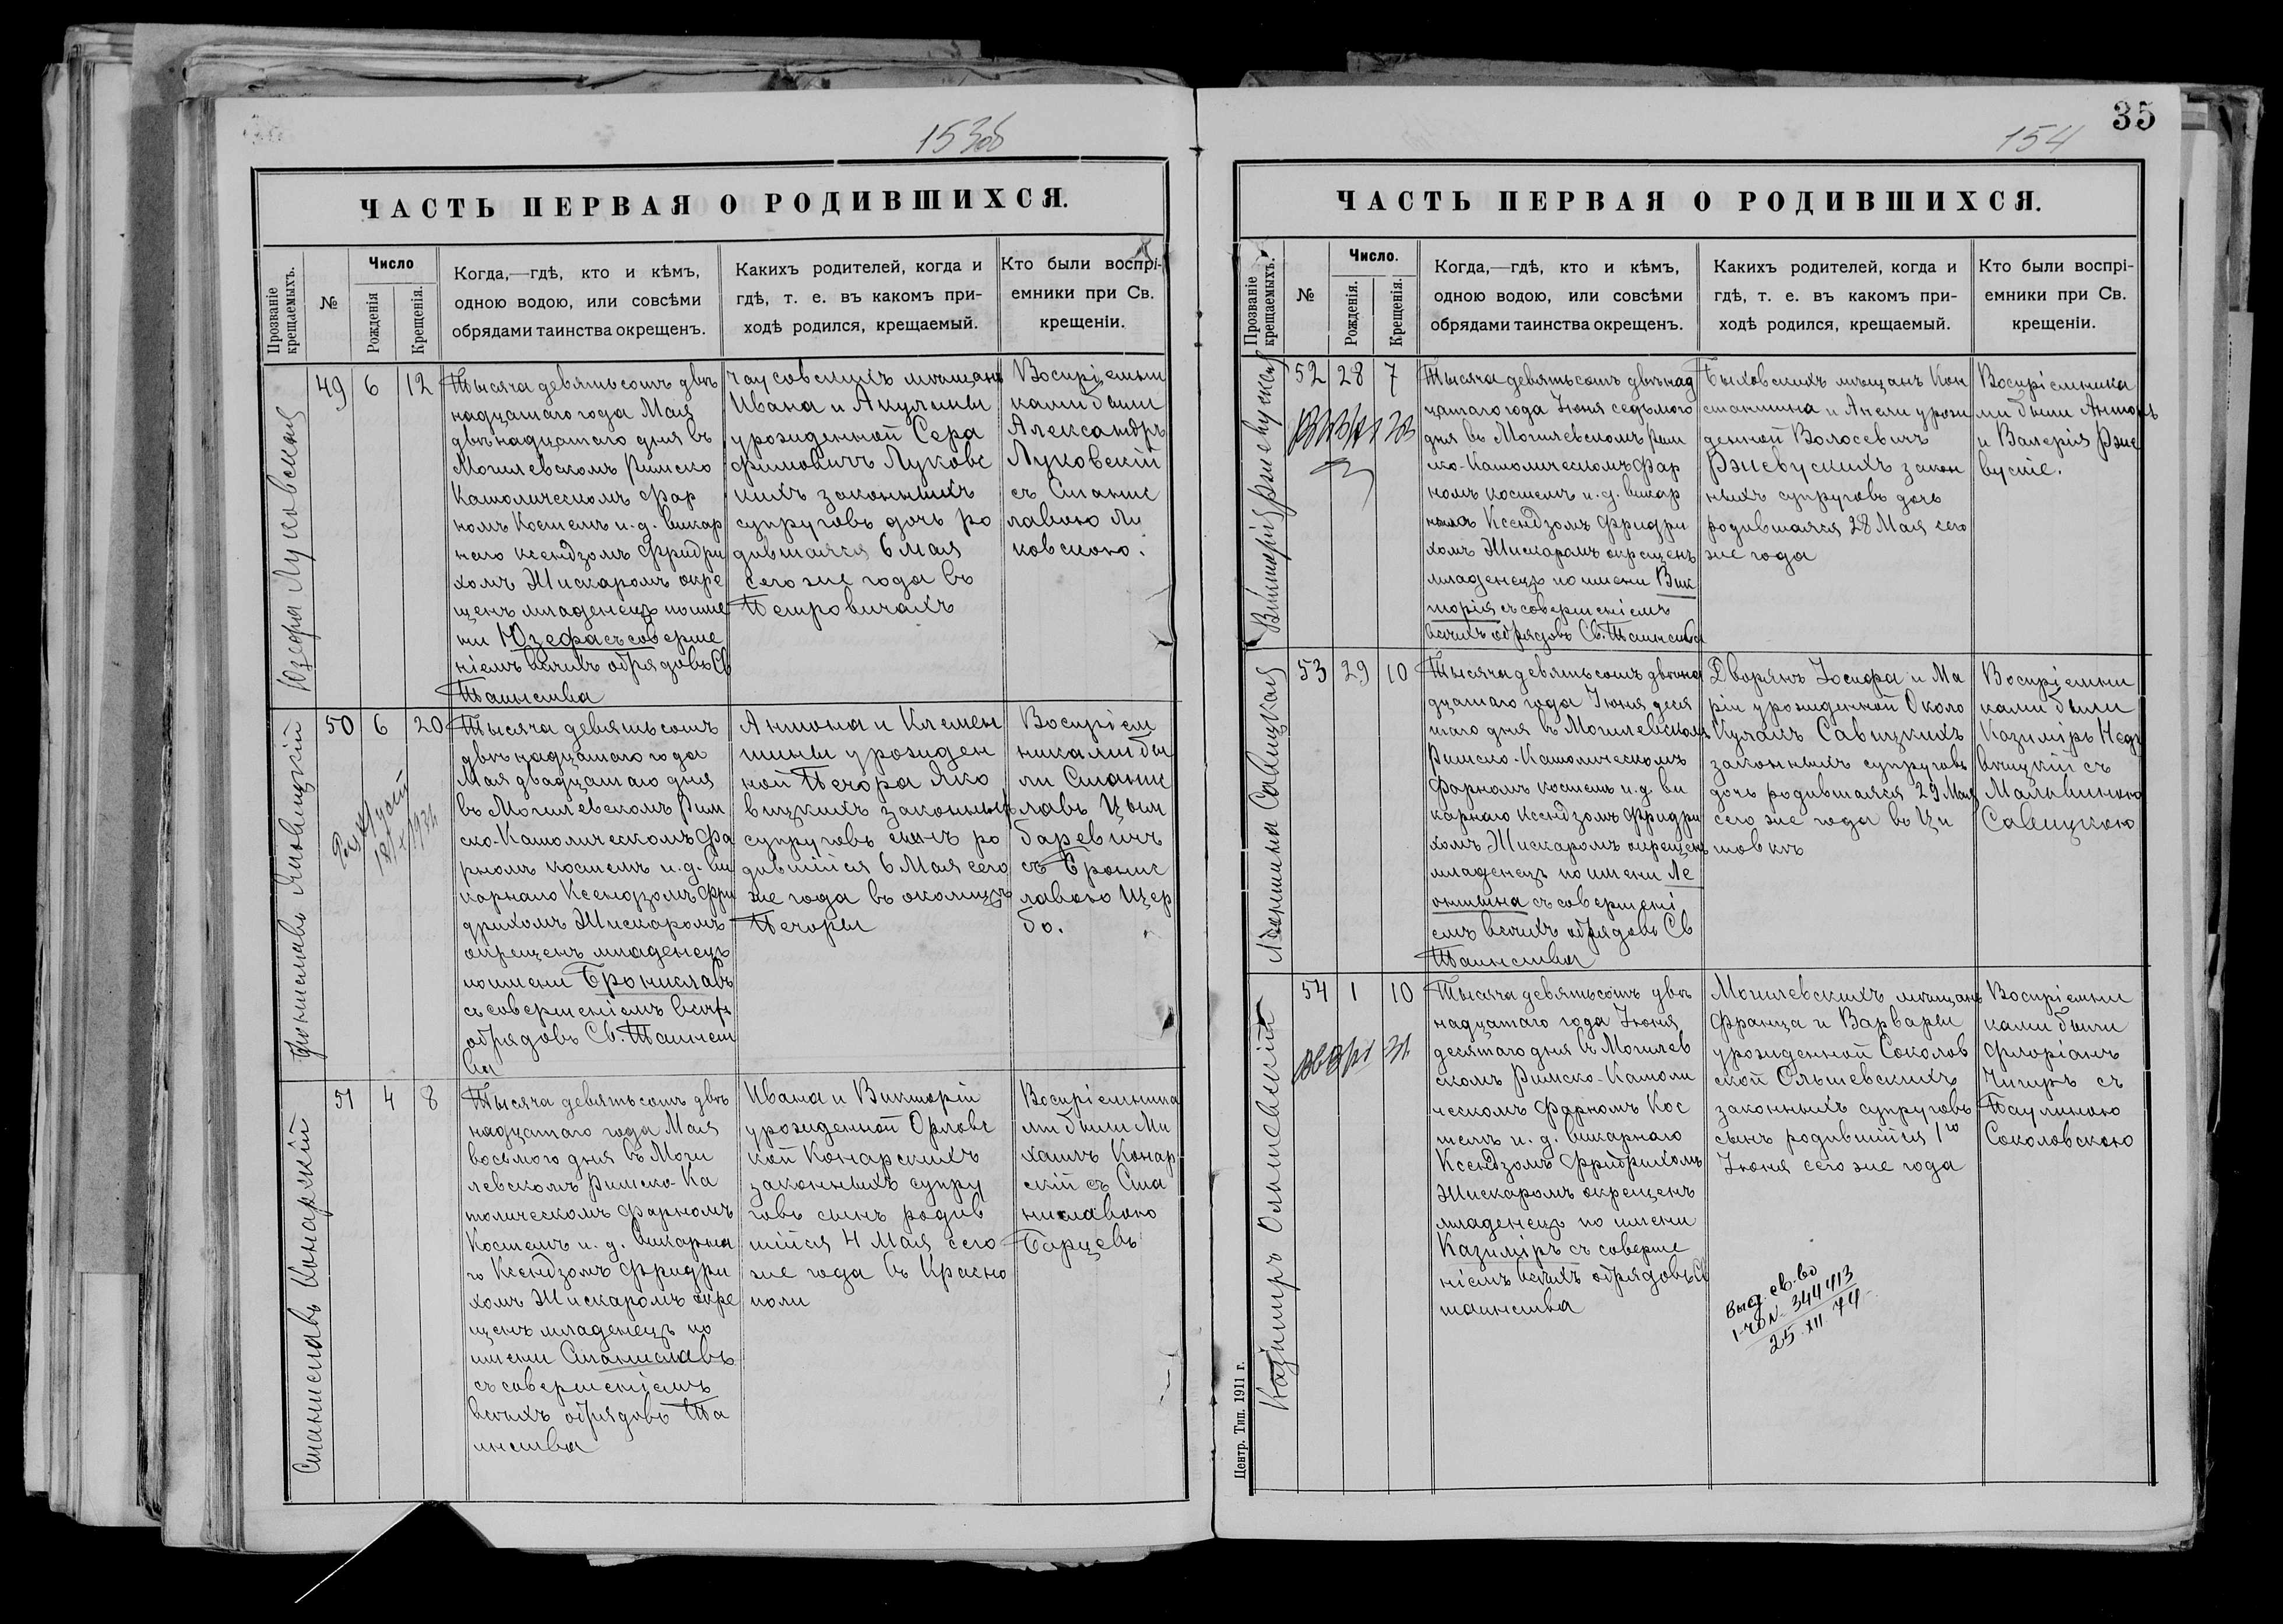 153об
ЧАСТЬ ПЕРВАЯ О РОДИВШИХСЯ.
Прозваніе крещаемыхъ.
№
Число
Рожденія
Крещенія.
Когда,—гдѣ, кто и кѣмъ,
одною водою, или совсѣми
обрядами таинства окрещенъ.
Какихъ родителей, когда и
гдѣ, т. е. въ какомъ при-
ходѣ родился, крещаемый.
Кто были воспрі-
емники при Св.
крещеніи.
Юзефа Луковская
49 6 12
Тысяча девятьсотъ двѣ
надцатаго года Мая
двѣнадцатаго дня въ
Могилевскомъ Римско
Католическомъ фар
номъ Костелѣ и. д. викар
наго ксендзомъ Фридри
хомъ Жискаромъ окре
щенъ младенецъ по име
ни Юзефа съ соверше
ніемъ всѣхъ обрядовъ Св
Таинства
Чаусовскихъ мѣщанъ
Ивана и Акулины
урожденной Сера
фимовичъ Луковс
кихъ законныхъ
супруговъ дочь ро
дившаяся 6 мая
сего же года въ
Петровичахъ
Воспріемни
ками были
Александръ
Луковскій
съ Станис
лавою Лу
ковскою.
Брониславъ Яковицкій
50 6 20
Тысяча девятьсотъ
двѣнадцатаго года
Мая двадцатаго дня
въ Могилевскомъ Рим
ско-Католическомъ фа
рномъ костелѣ и. д. ви
карнаго Ксендзомъ Фри
дрихомъ Жискаромъ
окрещенъ младенецъ
по имени Брониславъ
съ совершеніемъ всѣхъ
обрядовъ Св. Таинст
ва
Антона и Клемен
тины урожден
ной Печора Яко
вицкихъ законныхъ
супруговъ сынъ ро
дившійся 6 Мая сего
же года въ околицѣ
Печоры
Воспріем
никами бы
ли Станис
лавъ Цым
баревичъ
съ Бронис
лавою Щер
бо.
Станиславъ Конарскій
51 4 8
Тысяча девятьсотъ двѣ
надцатаго года Мая
восьмого дня въ Моги
левскомъ Римско-Ка
толическомъ фарномъ
Костелѣ и. д. викарна
го Ксендзомъ Фридри
хомъ Жискаромъ окре
щенъ младенецъ по
имени Станиславъ
съ совершеніемъ
всѣхъ обрядовъ Та
инства
Ивана и Викторіи
урожденной Орловс
кой Конарскихъ
законныхъ супру
говъ сынъ родив
шійся 4 Мая сего
же года въ Красно
поли
Воспріемника
ми были Ми
хаилъ Конар
скій съ Ста
ниславою
Барцевъ
35
154
ЧАСТЬ ПЕРВАЯ О РОДИВШИХСЯ.
Прозваніе крещаемыхъ.
№
Число.
Рожденія.
Крещенія.
Когда,—гдѣ, кто и кѣмъ,
одною водою, или совсѣми
обрядами таинства окрещенъ.
Какихъ родителей, когда и
гдѣ, т. е. въ какомъ при-
ходѣ родился, крещаемый.
Кто были воспрі-
емники при Св.
крещеніи.
Викторія Ржевуская
52 28 7
Тысяча девятьсотъ двѣнад
цатаго года Іюня седьмого
дня въ Могилевскомъ Рим
ско-Католическомъ фар
номъ костелѣ и. д. викар
наго Ксендзомъ Фридри
хомъ Жискаромъ окрещенъ
младенецъ по имени Вик
торія съ совершеніемъ
всѣхъ обрядовъ Св. Таинства
Быховскихъ мѣщанъ Кон
стантина и Анели урож
денной Волосевичъ
Ржевускихъ закон
ныхъ супруговъ дочь
родившаяся 28 Мая сего
же года
Воспріемника
ми были Антонъ
и Валерія Рже
вускіе.
Леонтина Савицкая
53 29 10
Тысяча девятьсотъ двѣна
дцатаго года Іюня деся
таго дня въ Могилевскомъ
Римско-Католическомъ
Фарномъ костелѣ и. д. ви
карнаго Ксендзомъ Фридри
хомъ Жискаромъ окрещенъ
младенецъ по имени Ле
онтина съ совершені
емъ всѣхъ обрядовъ Св
Таинства
Дворянъ Іосифа и Ма
ріи урожденной Около
Кулакъ Савицкихъ
законныхъ супруговъ
дочь родившаяся 29 Мая
сего же года въ Ци
товкѣ
Воспріемни
ками были
Казиміръ Недз
вѣцкій съ
Мальвиною
Савицкою
Казиміръ Ольшевскій
54 1 10
Тысяча девятьсотъ двѣ
надцатаго года Іюня
десятаго дня въ Могилев
скомъ Римско-Католи
ческомъ Фарномъ Кос
телѣ и. д. викарнаго
Ксендзомъ Фридрихомъ
Жискаромъ окрещенъ
младенецъ по имени
Казиміръ съ соверше
ніемъ всѣхъ обрядовъ Св
таинства
Могилевскихъ мѣщанъ
Франца и Варвары
урожденной Соколов
ской Ольшевскихъ
законныхъ супруговъ
сынъ родившійся 1го
Іюня сего же года
Воспріемни
ками были
Флоріанъ
Чигиръ съ
Паулиною
Соколовскою
Выд. св-во
344413
25.XII 74
Центр. Тип. 1911 г.